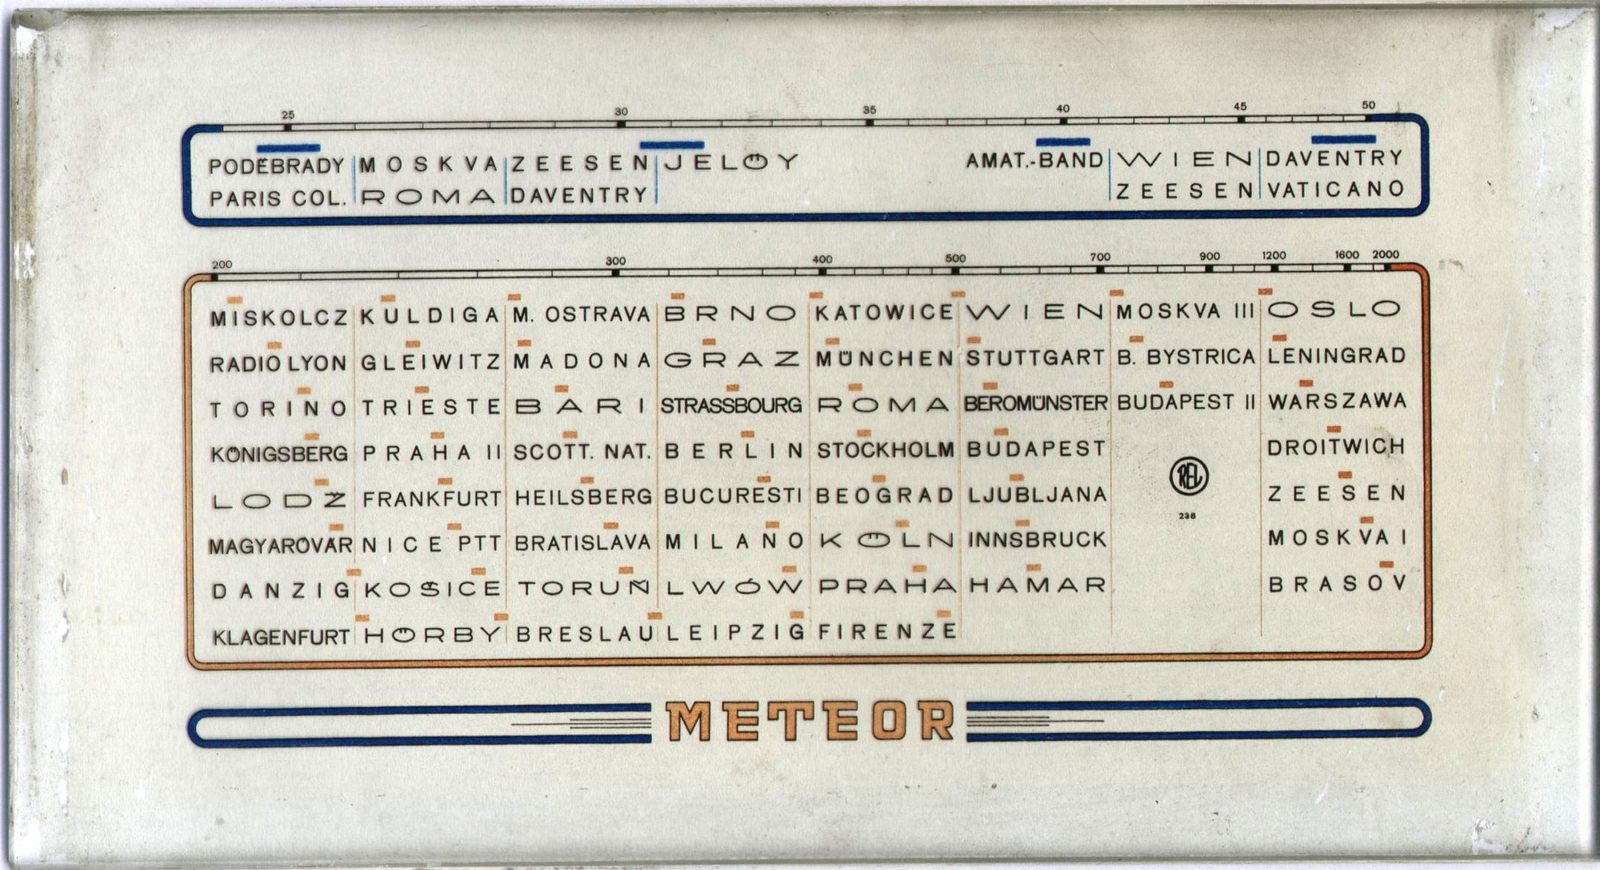 25 30 35 40 45 50
PODĚBRADY MOSKVA ZEESEN JELÖY AMAT.-BAND WIEN DAVENTRY
PARIS COL. ROMA DAVENTRY ZEESEN VATICANO
200 300 400 500 700 900 1200 1600 2000
MISKOLCZ KULDIGA M. OSTRAVA BRNO KATOWICE WIEN MOSKVA III OSLO
RADIO LYON GLEIWITZ MADONA GRAZ MÜNCHEN STUTTGART B. BYSTRICA LENINGRAD
TORINO TRIESTE BARI STRASSBOURG ROMA BEROMÜNSTER BUDAPEST II WARSZAWA
KÖNIGSBERG PRAHA II SCOTT. NAT. BERLIN STOCKHOLM BUDAPEST DROITWICH
LODŻ FRANKFURT HEILSBERG BUCURESTI BEOGRAD LJUBLJANA REL ZEESEN
238
MAGYARÓVÁR NICE PTT BRATISLAVA MILANO KÖLN INNSBRUCK MOSKVA I
DANZIG KOŠICE TORUŃ LWÓW PRAHA HAMAR BRASOV
KLAGENFURT HÖRBY BRESLAU LEIPZIG FIRENZE
METEOR